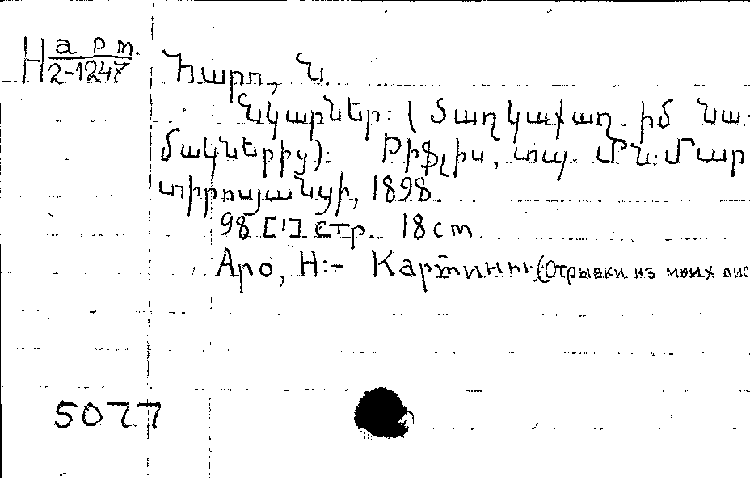 H арт. 2-1247
Հարո, Ն.
Նկարներ: (Տաղկաքաղ իմ նա-
մակներից): Թիֆլիս, տպ. Մն. Մար
տիրոսյանցի, 1898.
98 [1] стр. 18 cm
Аро, Н:- Картины (Отрывки из моих пис
5077